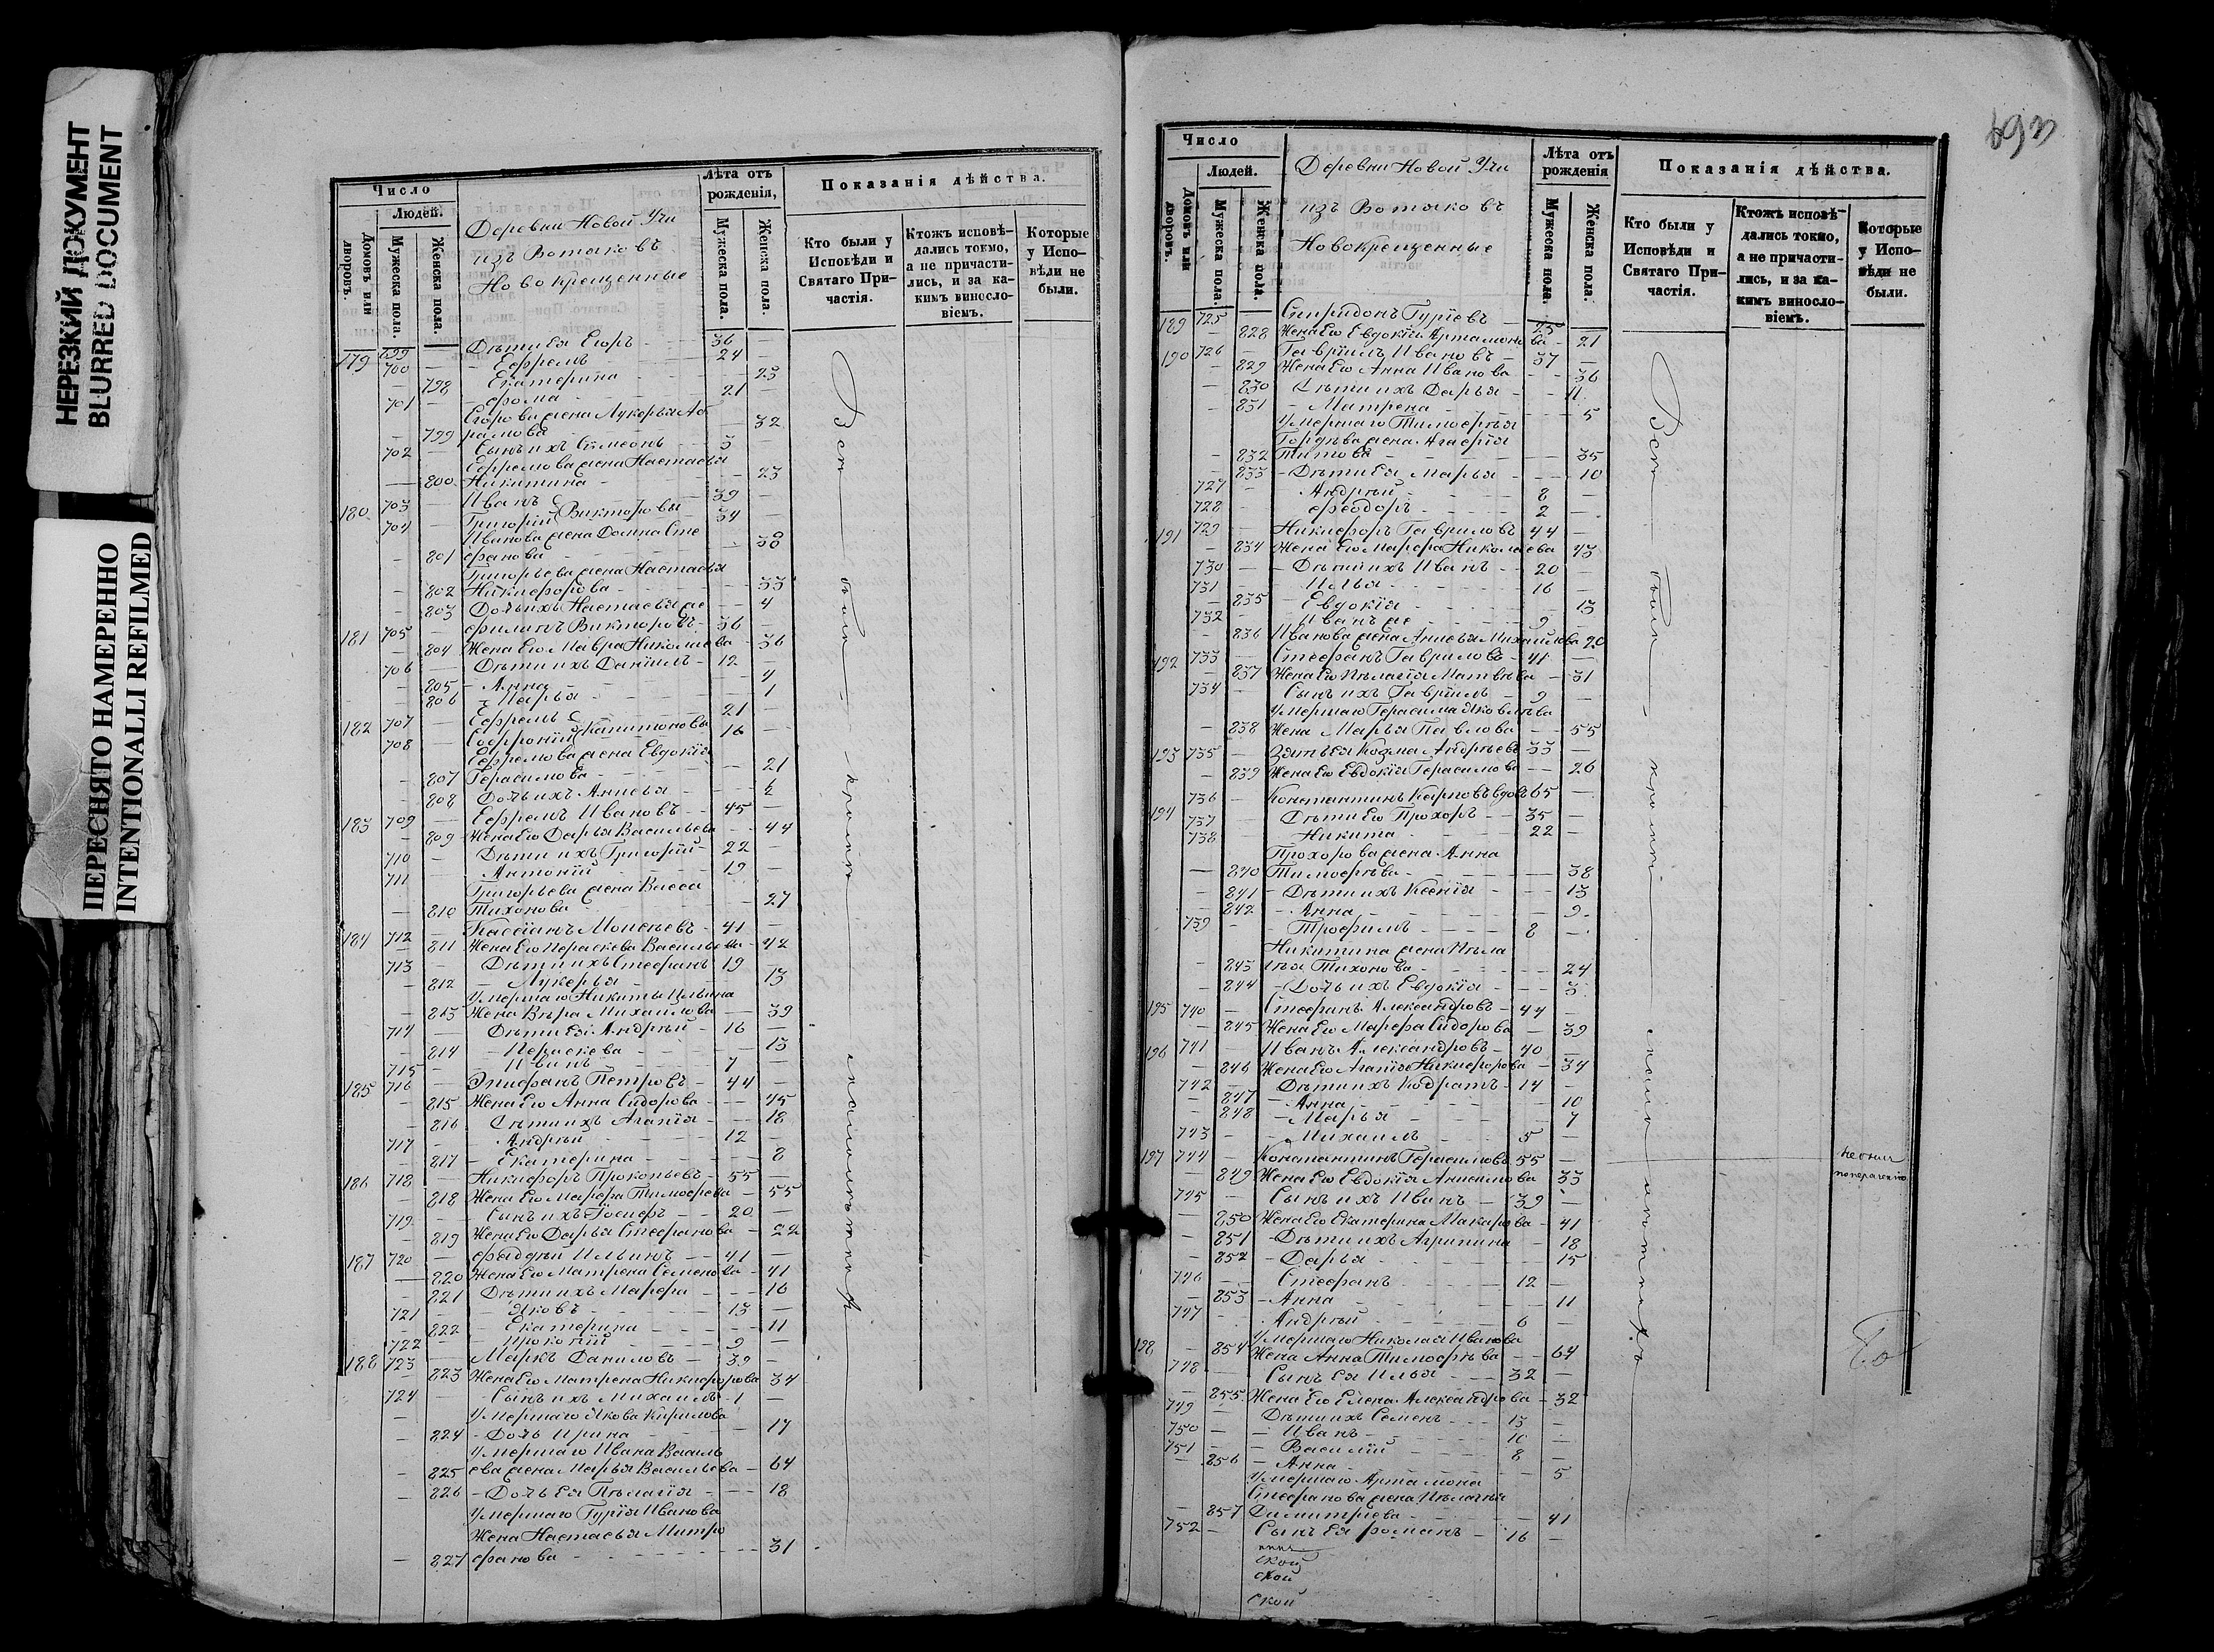 НЕРЕЗКИЙ ДОКУМЕНТ
BLURRED DOCUMENT
ПЕРЕСНЯТО НАМЕРЕННО
INTENTIONALLI REFILMED
Число
Людей.
Домовъ или дворовъ.
Мужеска пола.
Женска пола.
Деревни Новой Учи
изъ Вотяковъ
Новокрещенные
Лѣта отъ рожденія,
Мужеска пола.
Женска пола.
Показанія дѣйства.
Кто были у Исповѣди и Святаго Причастія.
Ктожъ исповѣдались токмо, а не причастились, и за какимъ винословіемъ.
Которые у Исповѣди не были.
179 699 — Дѣти Ея Егоръ - 36 —
700 — Ефремъ - 24 —
— 798 Екатерина - — 23
701 — Ѳома - 21
Егорова жена Лукерья Аб
— 799 рамова - — 32
702 — Сынъ ихъ Симеонъ - 3
Ефремова жена Настасья
— 800 Никитина - — 23
180 703 — Иванъ Викторовы - 39 —
704 — Григорій - 34 —
Иванова жена Домна Сте
— 801 фанова - — 38
Григорьева жена Настасья
— 802 Никифорова - — 33
— 803 Дочь ихъ Настасья же - — 4
181 705 — Филипъ Викторовъ - 36 —
— 804 Жена Его Мавра Николаева - 36
706 — Дѣти ихъ Даніилъ - 12 —
— 805 - Анна - 4
— 806 - Марья - 1
182 707 — Ефремъ Капитоновы 21 —
708 — Софроній 16 —
Ефремова жена Евдокія
— 807 Герасимова - — 21
— 808 Дочь ихъ Анисья -
183 709 — Ефремъ Ивановъ - 45 —
— 809 Жена Его Дарья Васильева - 44
710 — Дѣти ихъ Григорій - 22 —
711 — Антоній - 19 —
Григорьева жена Васса
— 810 Тихонова - — 27
184 712 — Кассіанъ Моисеевъ - 41 —
— 811 Жена Его Параскева Васильева - 42
713 — Дѣти ихъ Стефанъ 19
— 812 - Лукерья - 13
Умершаго Никиты Ильина
— 813 Жена Вѣра Михайлова — 39
714 — Дѣти Ея Андрѣй - 16 —
— 814 - Параскева - 13
715 - Иванъ - 7 —
185 716 — Епифанъ Петровъ - 44 —
— 815 Жена Его Анна Сидорова - 45
— 816 Дѣти ихъ Агапія - 18
717 — Андрѣй - 12 —
— 817 - Екатерина - 8
186 718 — Никифоръ Прокопьевъ - 55 —
— 818 Жена Его Марфа Тимофеева - 55
719 - Сынъ ихъ Іосифъ - 20 —
— 819 Жена Его Дарья Стефанова - 22
187 720 — Фаддѣй Ильинъ - 41 —
— 820 Жена Его Матрена Семенова - 41
— 821 Дѣти ихъ Марфа - 16
721 - Яковъ - 13 —
— 822 - Екатерина - 11
722 - Прокопій - 9 —
188 723 — Маркъ Даниловъ - 39 —
— 823 Жена Его Матрена Никифорова 34
724 — Сынъ ихъ Михаилъ - 1 —
Умершаго Якова Кирилова
— 824 - Дочь Ирина - 17
Умершаго Ивана Василь
— 825 ева жена Марья Васильева - 64
— 826 - Дочь Ея Пелагія - 18
Умершаго Гурія Иванова
Жена Настасья Митро
— 827 фанова - 31
Всѣ были
Число
Людей.
Домовъ или дворовъ.
Мужеска пола.
Женска пола.
Деревни Новой Учи
изъ Вотяковъ
Новокрещенные
Лѣта отъ рожденія
Мужеска пола.
Женска пола.
Показанія дѣйства.
Кто были у Исповѣди и Святаго Причастія.
Ктожъ исповѣдались токмо, а не причастились, и за какимъ винословіемъ.
Которые у Исповѣди не были.
189 725 — Спиридонъ Гуріевъ — 25 —
828 Жена Его Евдокія Артамонова - 21
190 726 — Гавріилъ Ивановъ - 37 —
— 829 Жена Его Анна Иванова - 36
— 830 Дѣти ихъ Дарья - 11
— 831 - Матрена - 5
Умершаго Тимофѣя
Гордѣева жена Агафія
— 832 Титова - 35
— 833 - Дѣти Ея Марья - 10
727 — Андрѣй - 8 —
728 — Ѳеодоръ - 2 —
191 729 — Никифоръ Гавриловъ 44 —
— 834 Жена Его Марфа Николаева 43
730 — Дѣти ихъ Иванъ - 20 —
731 — Илья - 16 —
— 835 Евдокія - 13
732 — Иванъ же - 9 —
— 836 Иванова жена Анисья Михайлова 20
192 733 — Стефанъ Гавриловъ - 41 —
— 837 Жена Его Пелагія Матвѣева - 31
734 — Сынъ ихъ Гавріилъ - 9 —
Умершаго Герасима Яковлева
— 838 Жена Марья Павлова - 55
193 735 — Зять Ея Козма Андрѣевъ 33 —
— 839 Жена Его Евдокія Герасимова - 26
194 736 — Константинъ Карповъ вдовъ 65 —
737 — Дѣти Его Прохоръ - 35 —
738 — Никита - 22 —
Прохорова жена Анна
— 840 Тимофѣева - 38
— 841 - Дѣти ихъ Ксенія - 13
— 842 - Анна - 9
739 — Трофимъ - 8 —
Никитина жена Пела
— 843 гѣя Тихонова - 24
— 844 - Дочь ихъ Евдокія - 3
195 740 — Стефанъ Александровъ - 44 —
— 845 Жена Его Марфа Сидорова - 39
196 741 — Иванъ Александровъ - 40 —
— 846 Жена Его Агапія Никифорова - 34
742 — Дѣти ихъ Кодратъ - 14 —
— 847 - Анна - 10
— 848 - Марья - 7
743 — Михаилъ - 5 —
197 744 — Константинъ Герасимовъ 55 —
849 Жена Его Евдокія Анисимова 33
745 — Сынъ ихъ Иванъ - 39 —
— 850 Жена Его Екатерина Макарова - 41
— 851 - Дѣти ихъ Агрипина - 18
— 852 - Дарья - 15
746 — Стефанъ - 12 —
— 853 - Анна - 11
747 — Андрѣй - 6 —
Умершаго Николая Иванова
198 — 854 Жена Анна Тимофѣева - 64
748 — Сынъ Ея Илья - 32 —
— 855 Жена Его Елена Александрова - 32
749 — Дѣти ихъ Семенъ - 13 —
750 — Иванъ - 10 —
751 — Василій - 8 —
— 856 - Анна - 5
Умершаго Артамона
Стефанова жена Пелагѣя
— 857 Димитріева - 41
752 — Сынъ Ея Романъ - 16 —
ской
ской
Всѣ были
не былъ